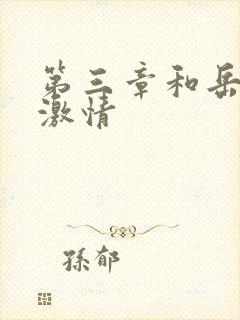 第三章和岳
激情
孫郁